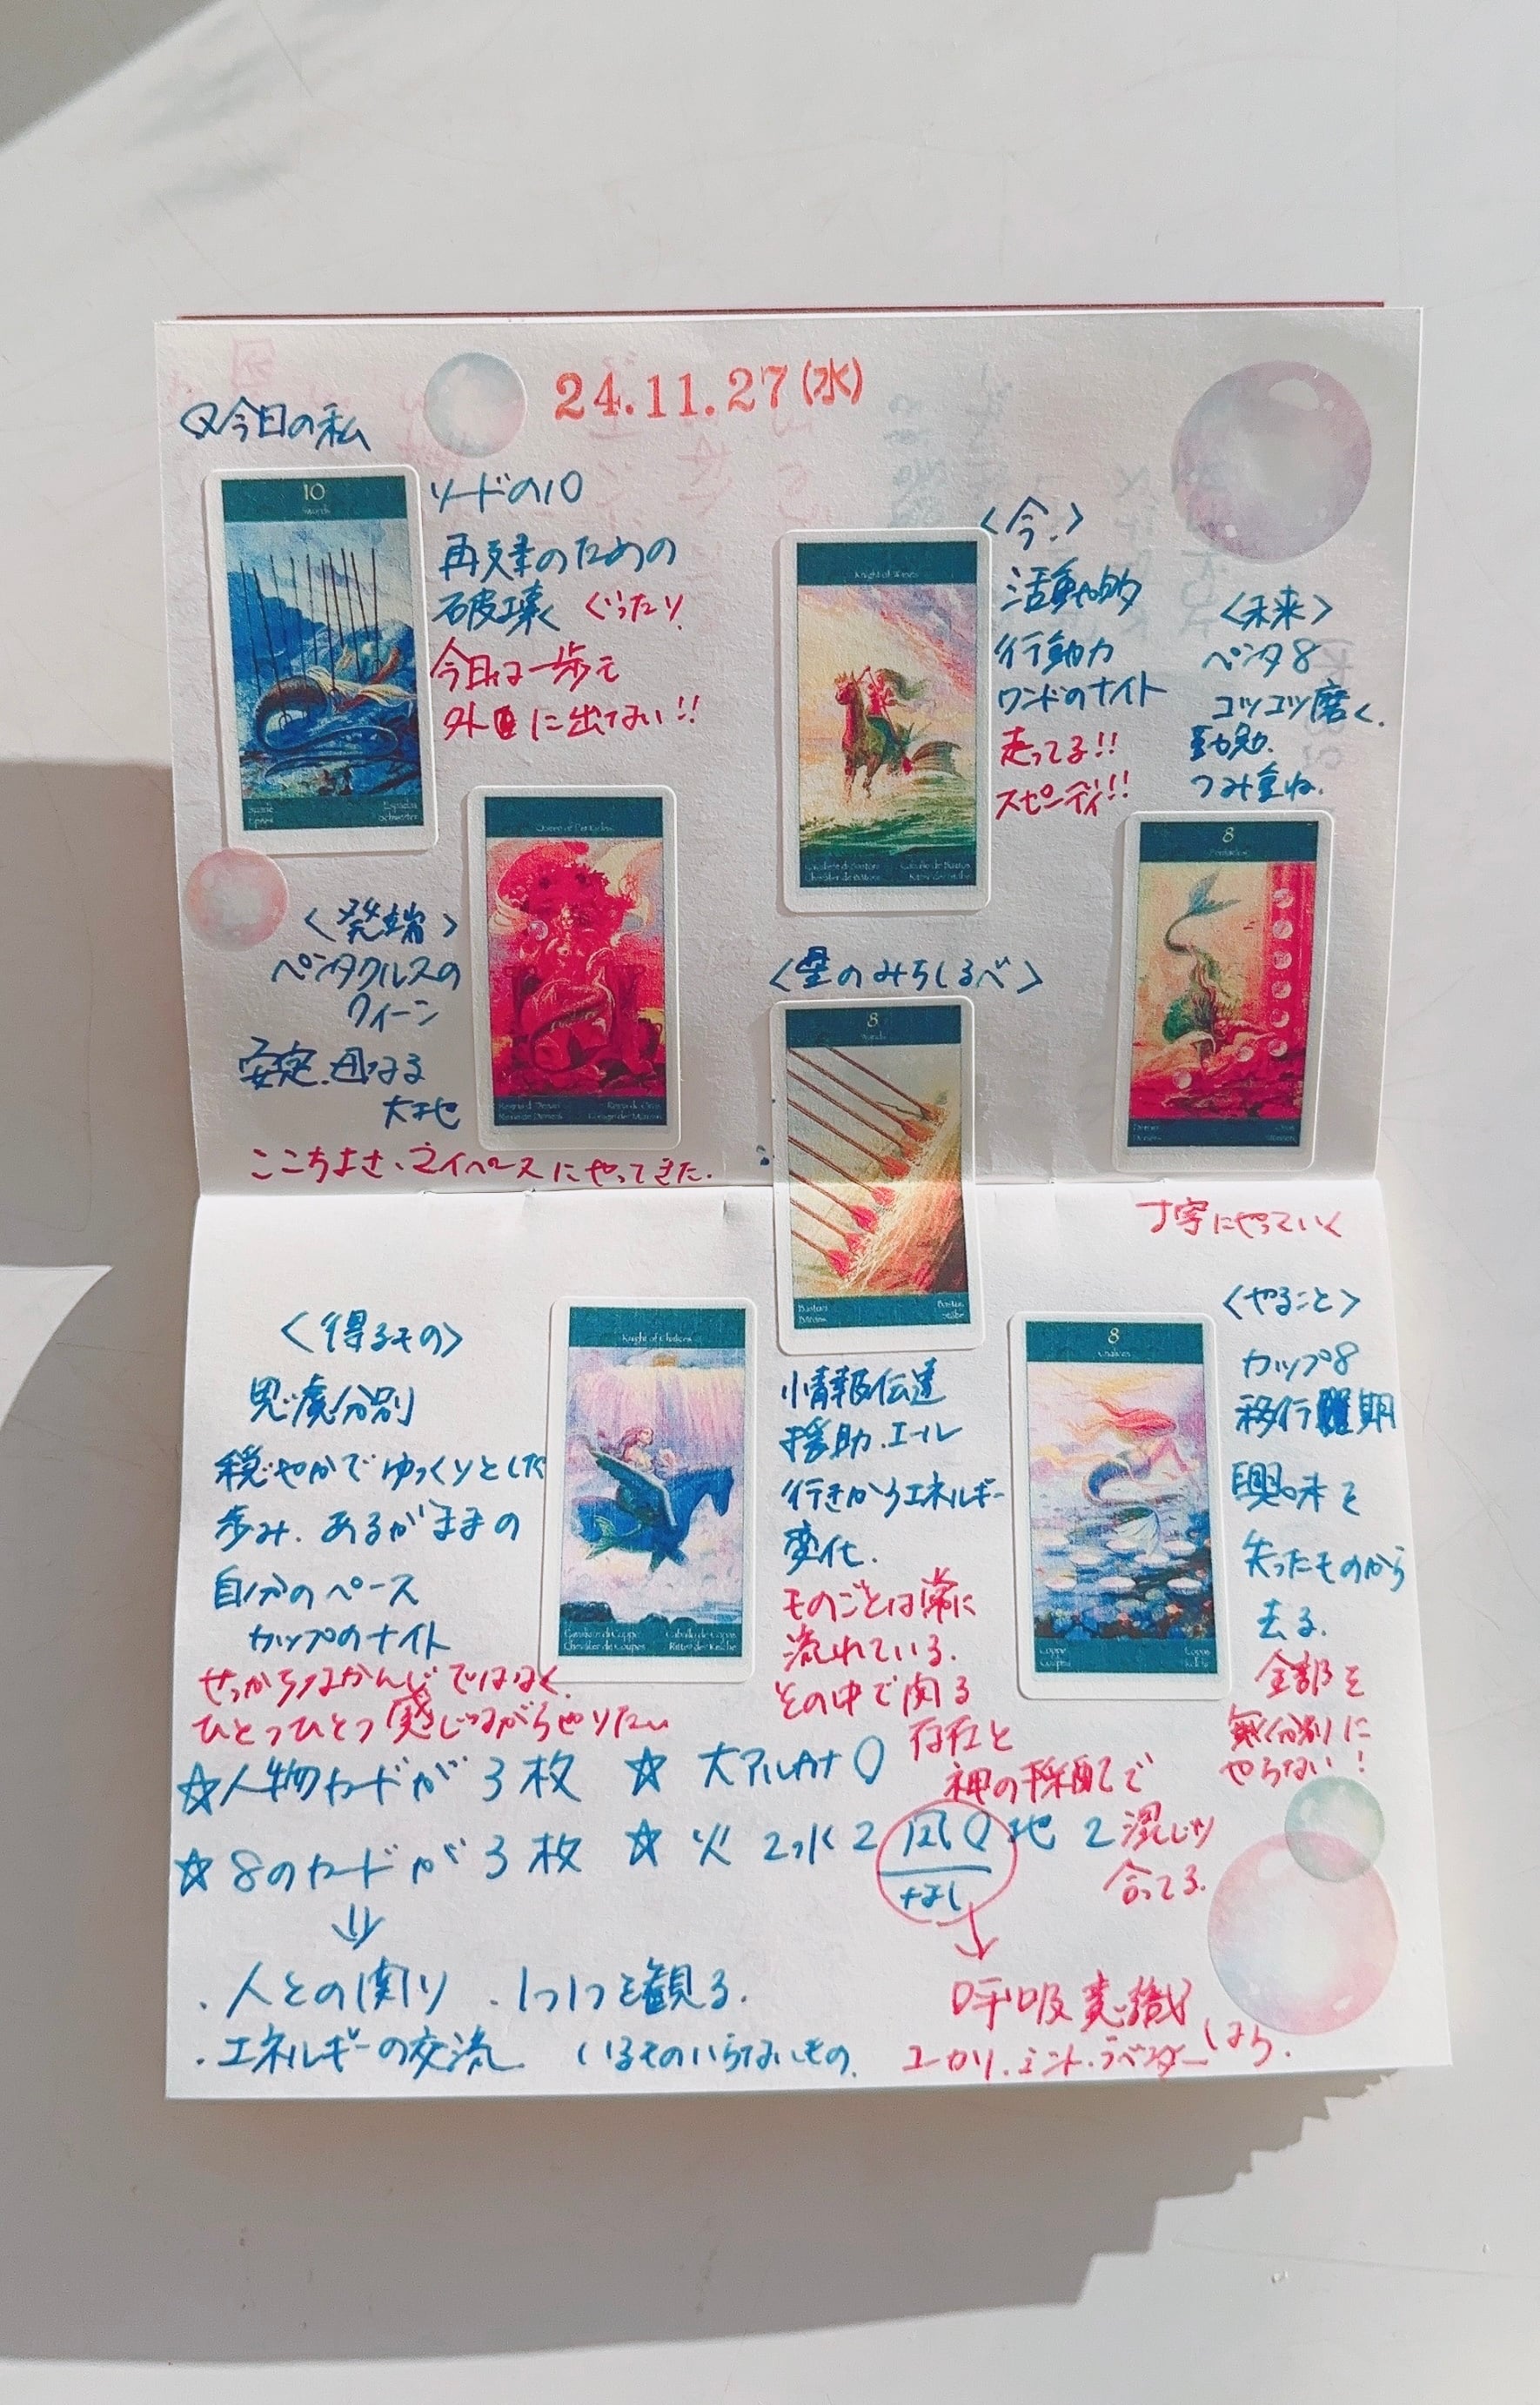 24.11.27(水)
Q今日の私
10
ソードの10
再生のための
破壊 ぐったり
今日は一歩も
外に出てない!!
<今>
Knight of Wands
活動的
行動力
ワンドのナイト
走ってる!!
スピーディ!!
<未来>
ペンタ8
コツコツ磨く.
勤勉.
つみ重ね.
8
Pentacles
丁寧にやっていく
<発端>
ペンタクルスの
クィーン
安定.母なる
大地
Queen of Pentacles
ここちよさ、マイペースにやってきた.
<星のみちしるべ>
8
Wands
Bastoni
Bastos
Bâtons
Stäbe
情報伝達
援助.エール
行きかうエネルギー
変化.
ものごとは常に
流れている.
その中で関る
存在と
神の采配で
混じり
合ってる.
<得るもの>
思慮分別
穏やかでゆっくりとした
歩み.あるがままの
自分のペース
カップのナイト
Knight of Chalices
Cavaliere di Coppe
Caballo de Copas
Chevalier de Coupes
Ritter der Kelche
せっかちなかんじではなく.
ひとつひとつ感じながらやりたい
<やること>
カップ8
移行期
興味を
失ったものから
去る.
全部を
無分別に
やらない!
8
Chalices
Coppe
Copas
Coupes
Kelche
☆人物カードが3枚 ☆大アルカナ0
☆8のカードが3枚 ☆火2水2風0地2
なし
⇓
.人との関り .1つ1つを観る.
.エネルギーの交流 いるものいらないもの.
↓
呼吸意識
ユーカリ.ミント.ラベンダー